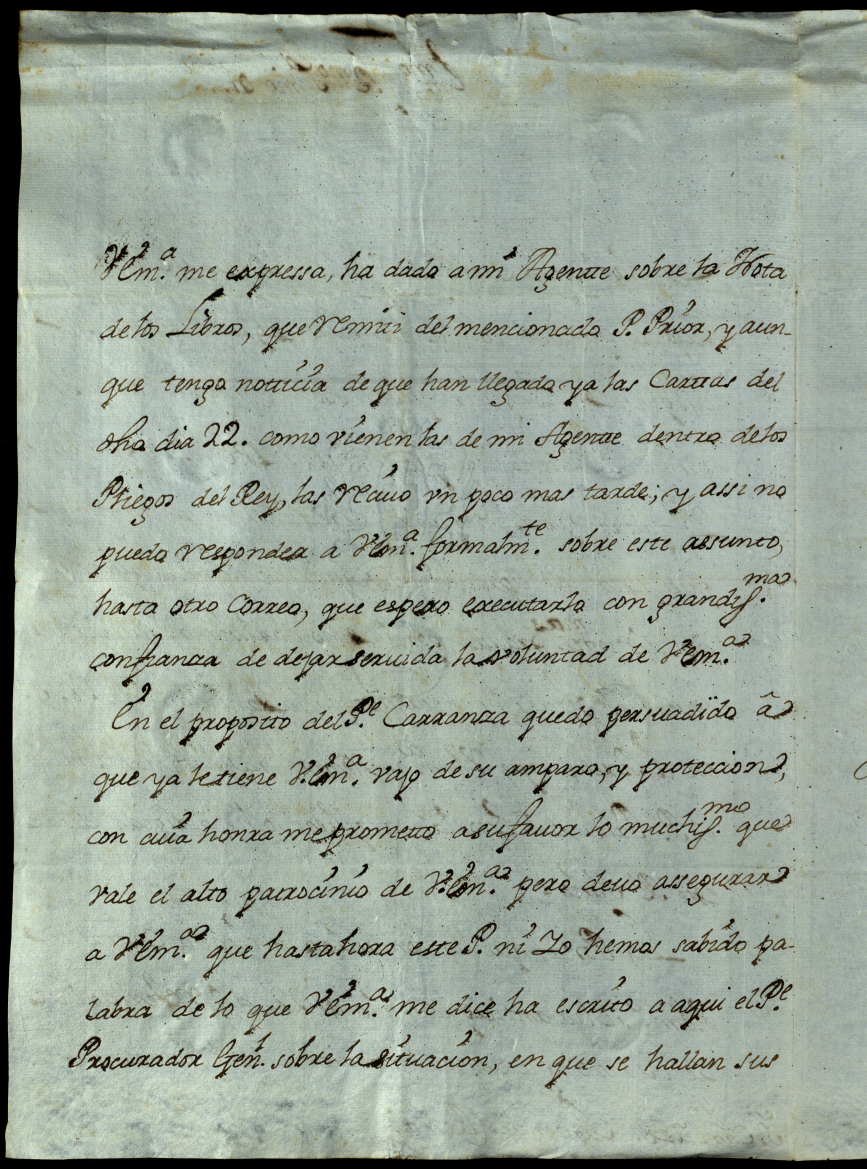 VEm.ª me expressa, ha dado a mi Agentte sobre la Nota
de los Libros, que Remiti del mencionado P. Prior, y aun-
que tengo notticia de que han llegado ya las Carttas del
dho dia 22. como vienen las de mi Agentte dentro de los
Pliegos del Rey, las Reciuo vn poco mas tarde; y assi no
puedo responder a VEm.ª formalm.te sobre este assunto,
hasta otro Correo, que espero executarlo con grandiss.ma
confianza de dejar seruida la voluntad de VEm.ª
En el proposito del P.e Carranza quedo persuadido â
que ya le tiene VEm.ª vajo de su amparo, y proteccion,
con cuia honra me prometto a su fauor lo muchiss.mo que
vale el alto patrocinio de VEm.ª pero deuo assegurar
a VEm.ª que hasta hora este P. ni Yo hemos sabido pa-
labra de lo que VEm.ª me dice ha escrito a aqui el P.e
Procurador Gen.l sobre la situacion, en que se hallan sus